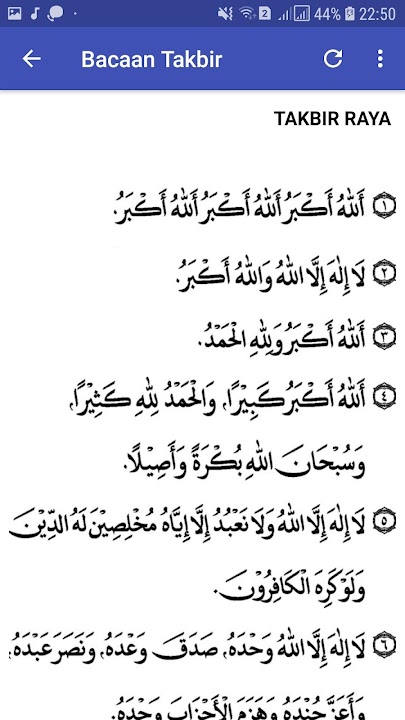 44% 22:50
Bacaan Takbir
TAKBIR RAYA
١ اَللهُ أَكْبَرُ اَللهُ أَكْبَرُ اَللهُ أَكْبَرُ.
٢ لَا إِلٰهَ إِلَّا اللهُ وَاللهُ أَكْبَرُ.
٣ اَللهُ أَكْبَرُ وَلِلّٰهِ الْحَمْدُ.
٤ اَللهُ أَكْبَرُ كَبِيْرًا، وَالْحَمْدُ لِلّٰهِ كَثِيْرًا،
وَسُبْحَانَ اللهِ بُكْرَةً وَأَصِيْلًا.
٥ لَا إِلٰهَ إِلَّا اللهُ وَلَا نَعْبُدُ إِلَّا إِيَّاهُ مُخْلِصِيْنَ لَهُ الدِّيْنَ
وَلَوْ كَرِهَ الْكَافِرُوْنَ.
٦ لَا إِلٰهَ إِلَّا اللهُ وَحْدَهُ، صَدَقَ وَعْدَهُ، وَنَصَرَ عَبْدَهُ،
وَأَعَزَّ جُنْدَهُ وَهَزَمَ الْأَحْزَابَ وَحْدَهُ.